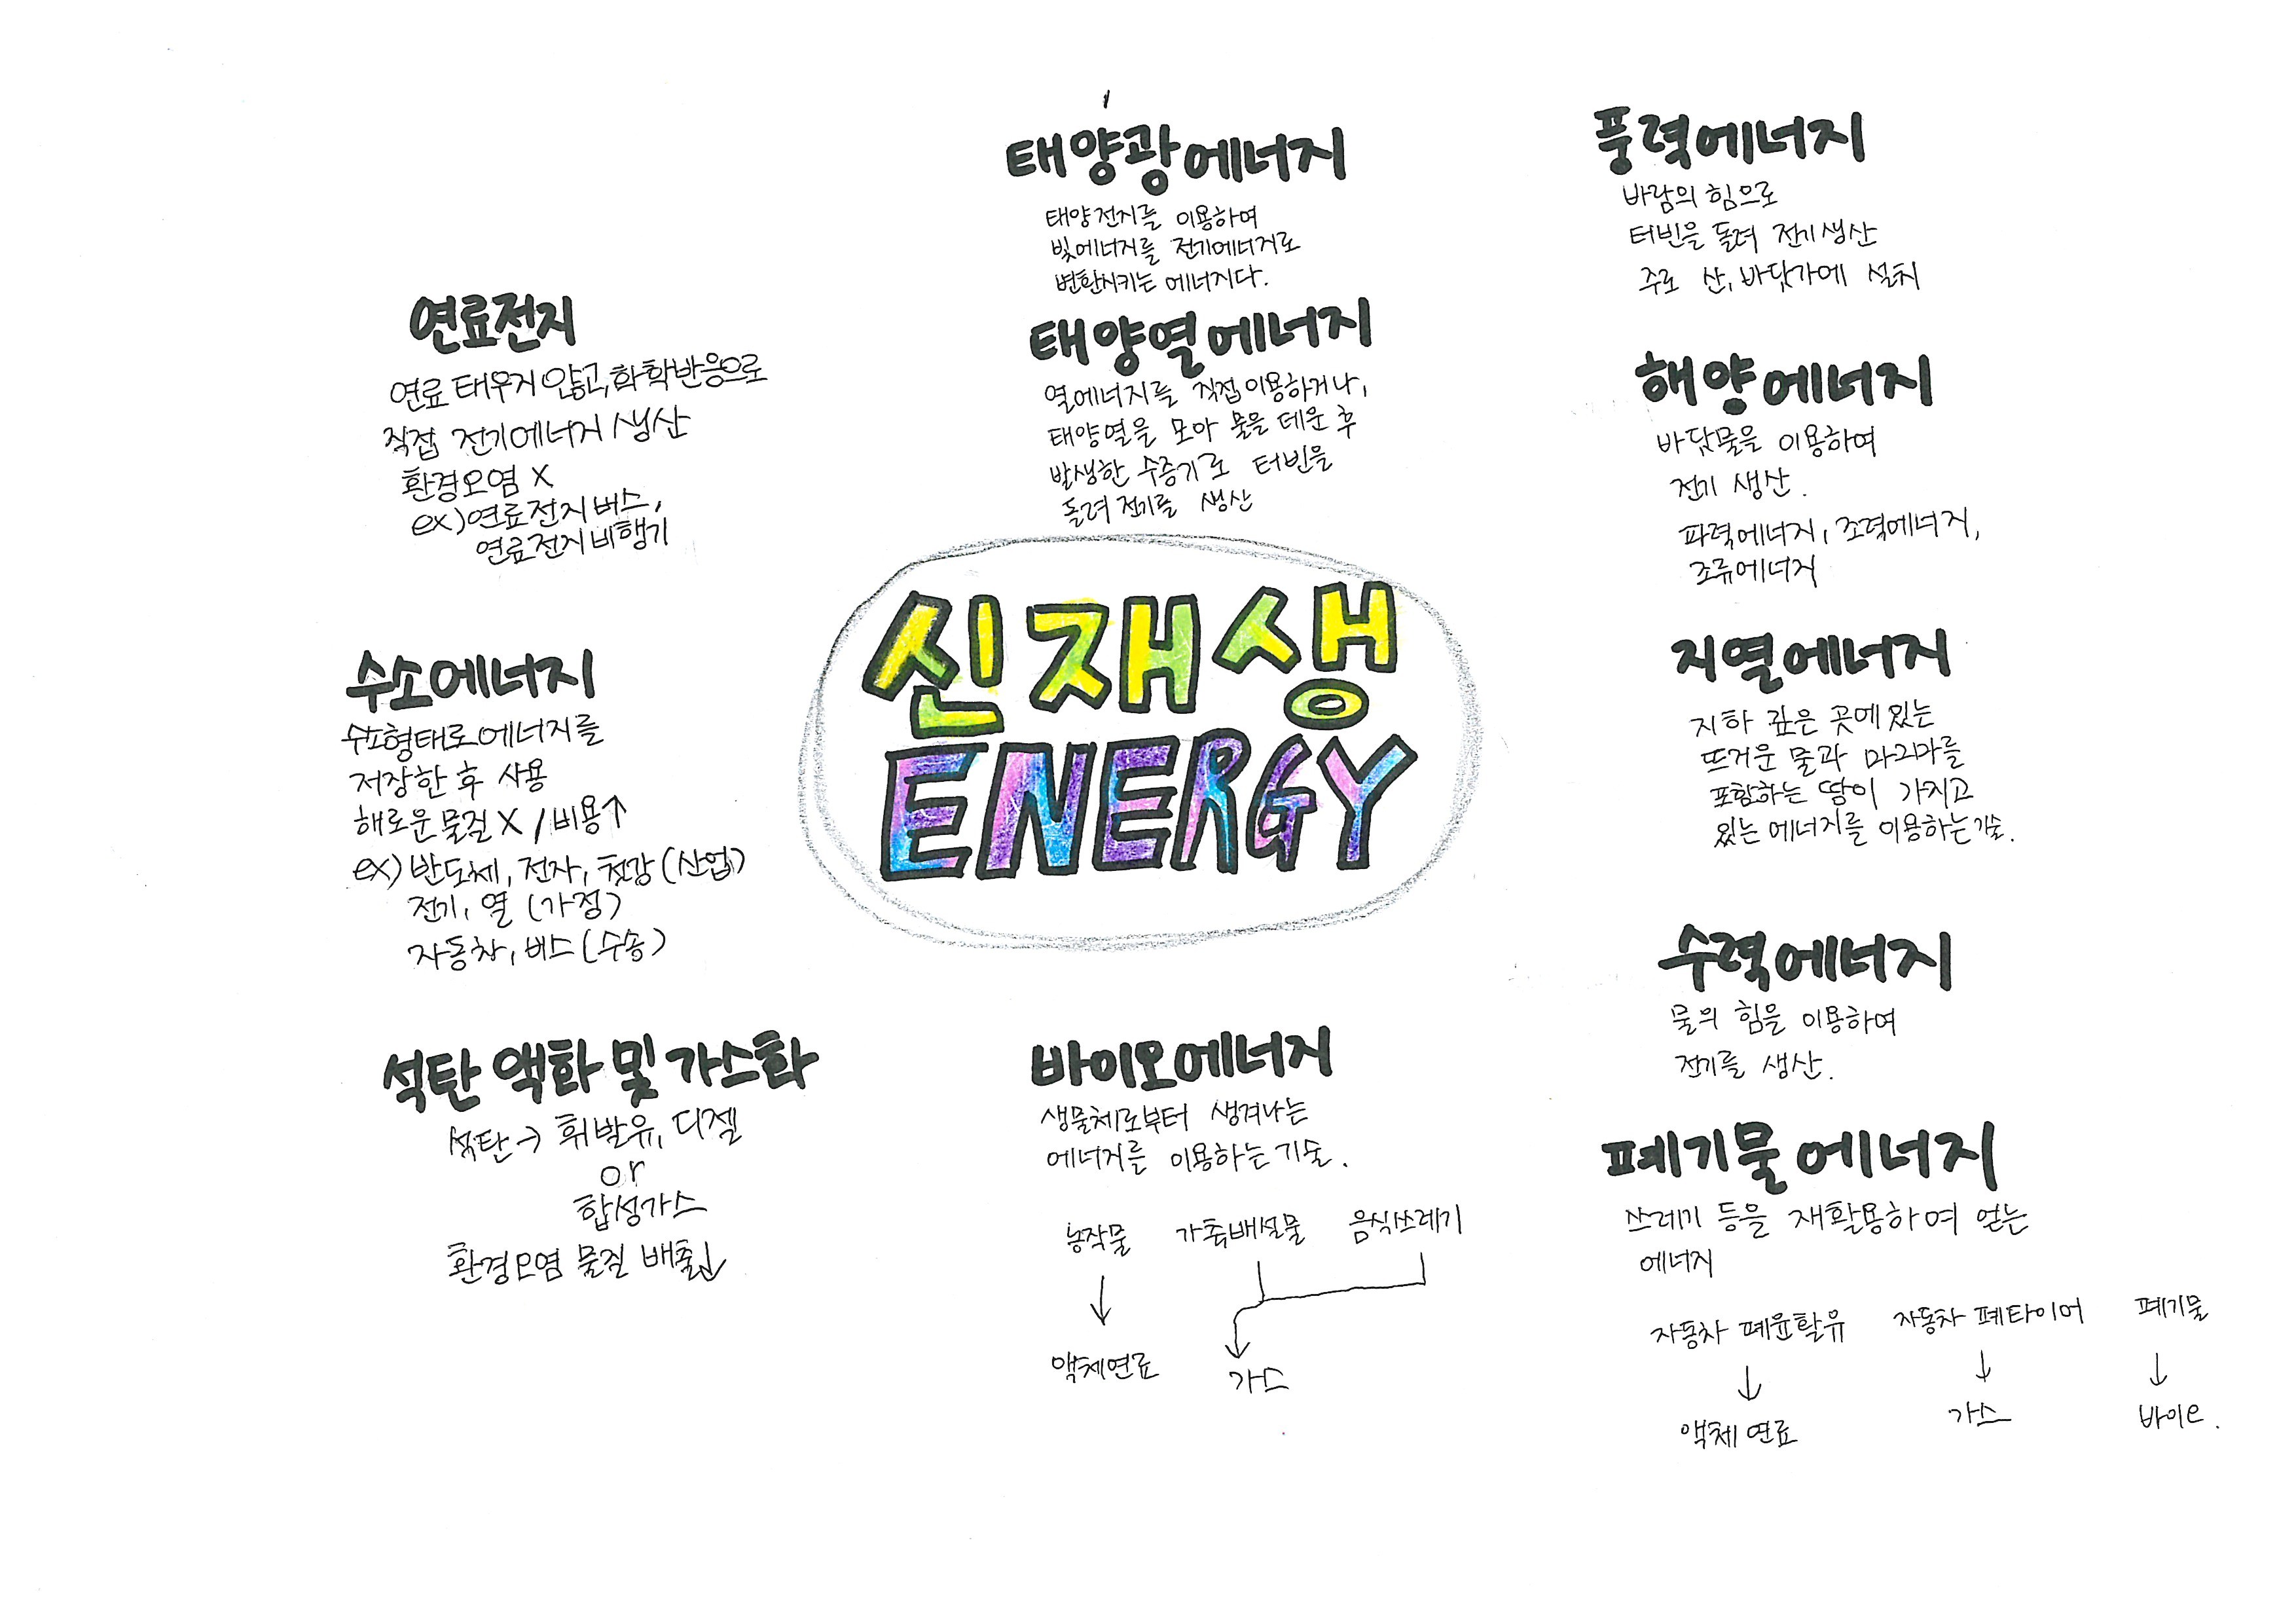 태양광에너지
태양전지를 이용하여
빛에너지를 전기에너지로
변환시키는 에너지다.
태양열에너지
열에너지를 직접이용하거나,
태양열을 모아 물을 데운 후
발생한 수증기로 터빈을
돌려 전기를 생산
풍력에너지
바람의 힘으로
터빈을 돌려 전기생산
주로 산, 바닷가에 설치
해양에너지
바닷물을 이용하여
전기 생산.
파력에너지, 조력에너지,
조류에너지
지열에너지
지하 깊은 곳에 있는
뜨거운 물과 마그마를
포함하는 땅이 가지고
있는 에너지를 이용하는 기술.
수력에너지
물의 힘을 이용하여
전기를 생산.
폐기물에너지
쓰레기 등을 재활용하여 얻는
에너지
자동차 폐윤활유 자동차 폐타이어 폐기물
↓ ↓ ↓
액체연료 가스 바이오.
바이오에너지
생물체로부터 생겨나는
에너지를 이용하는 기술.
농작물 가축배설물 음식쓰레기
액체연료 가스
연료전지
연료 태우지 않고, 화학반응으로
직접 전기에너지 생산
환경오염 X
ex) 연료전지 버스,
연료전지 비행기
수소에너지
수소형태로 에너지를
저장한 후 사용
해로운 물질 X / 비용↑
ex) 반도체, 전자, 철강 (산업)
전기, 열 (가정)
자동차, 버스 (수송)
석탄 액화 및 가스화
석탄 → 휘발유, 디젤
or
합성가스
환경오염 물질 배출↓
신재생
ENERGY